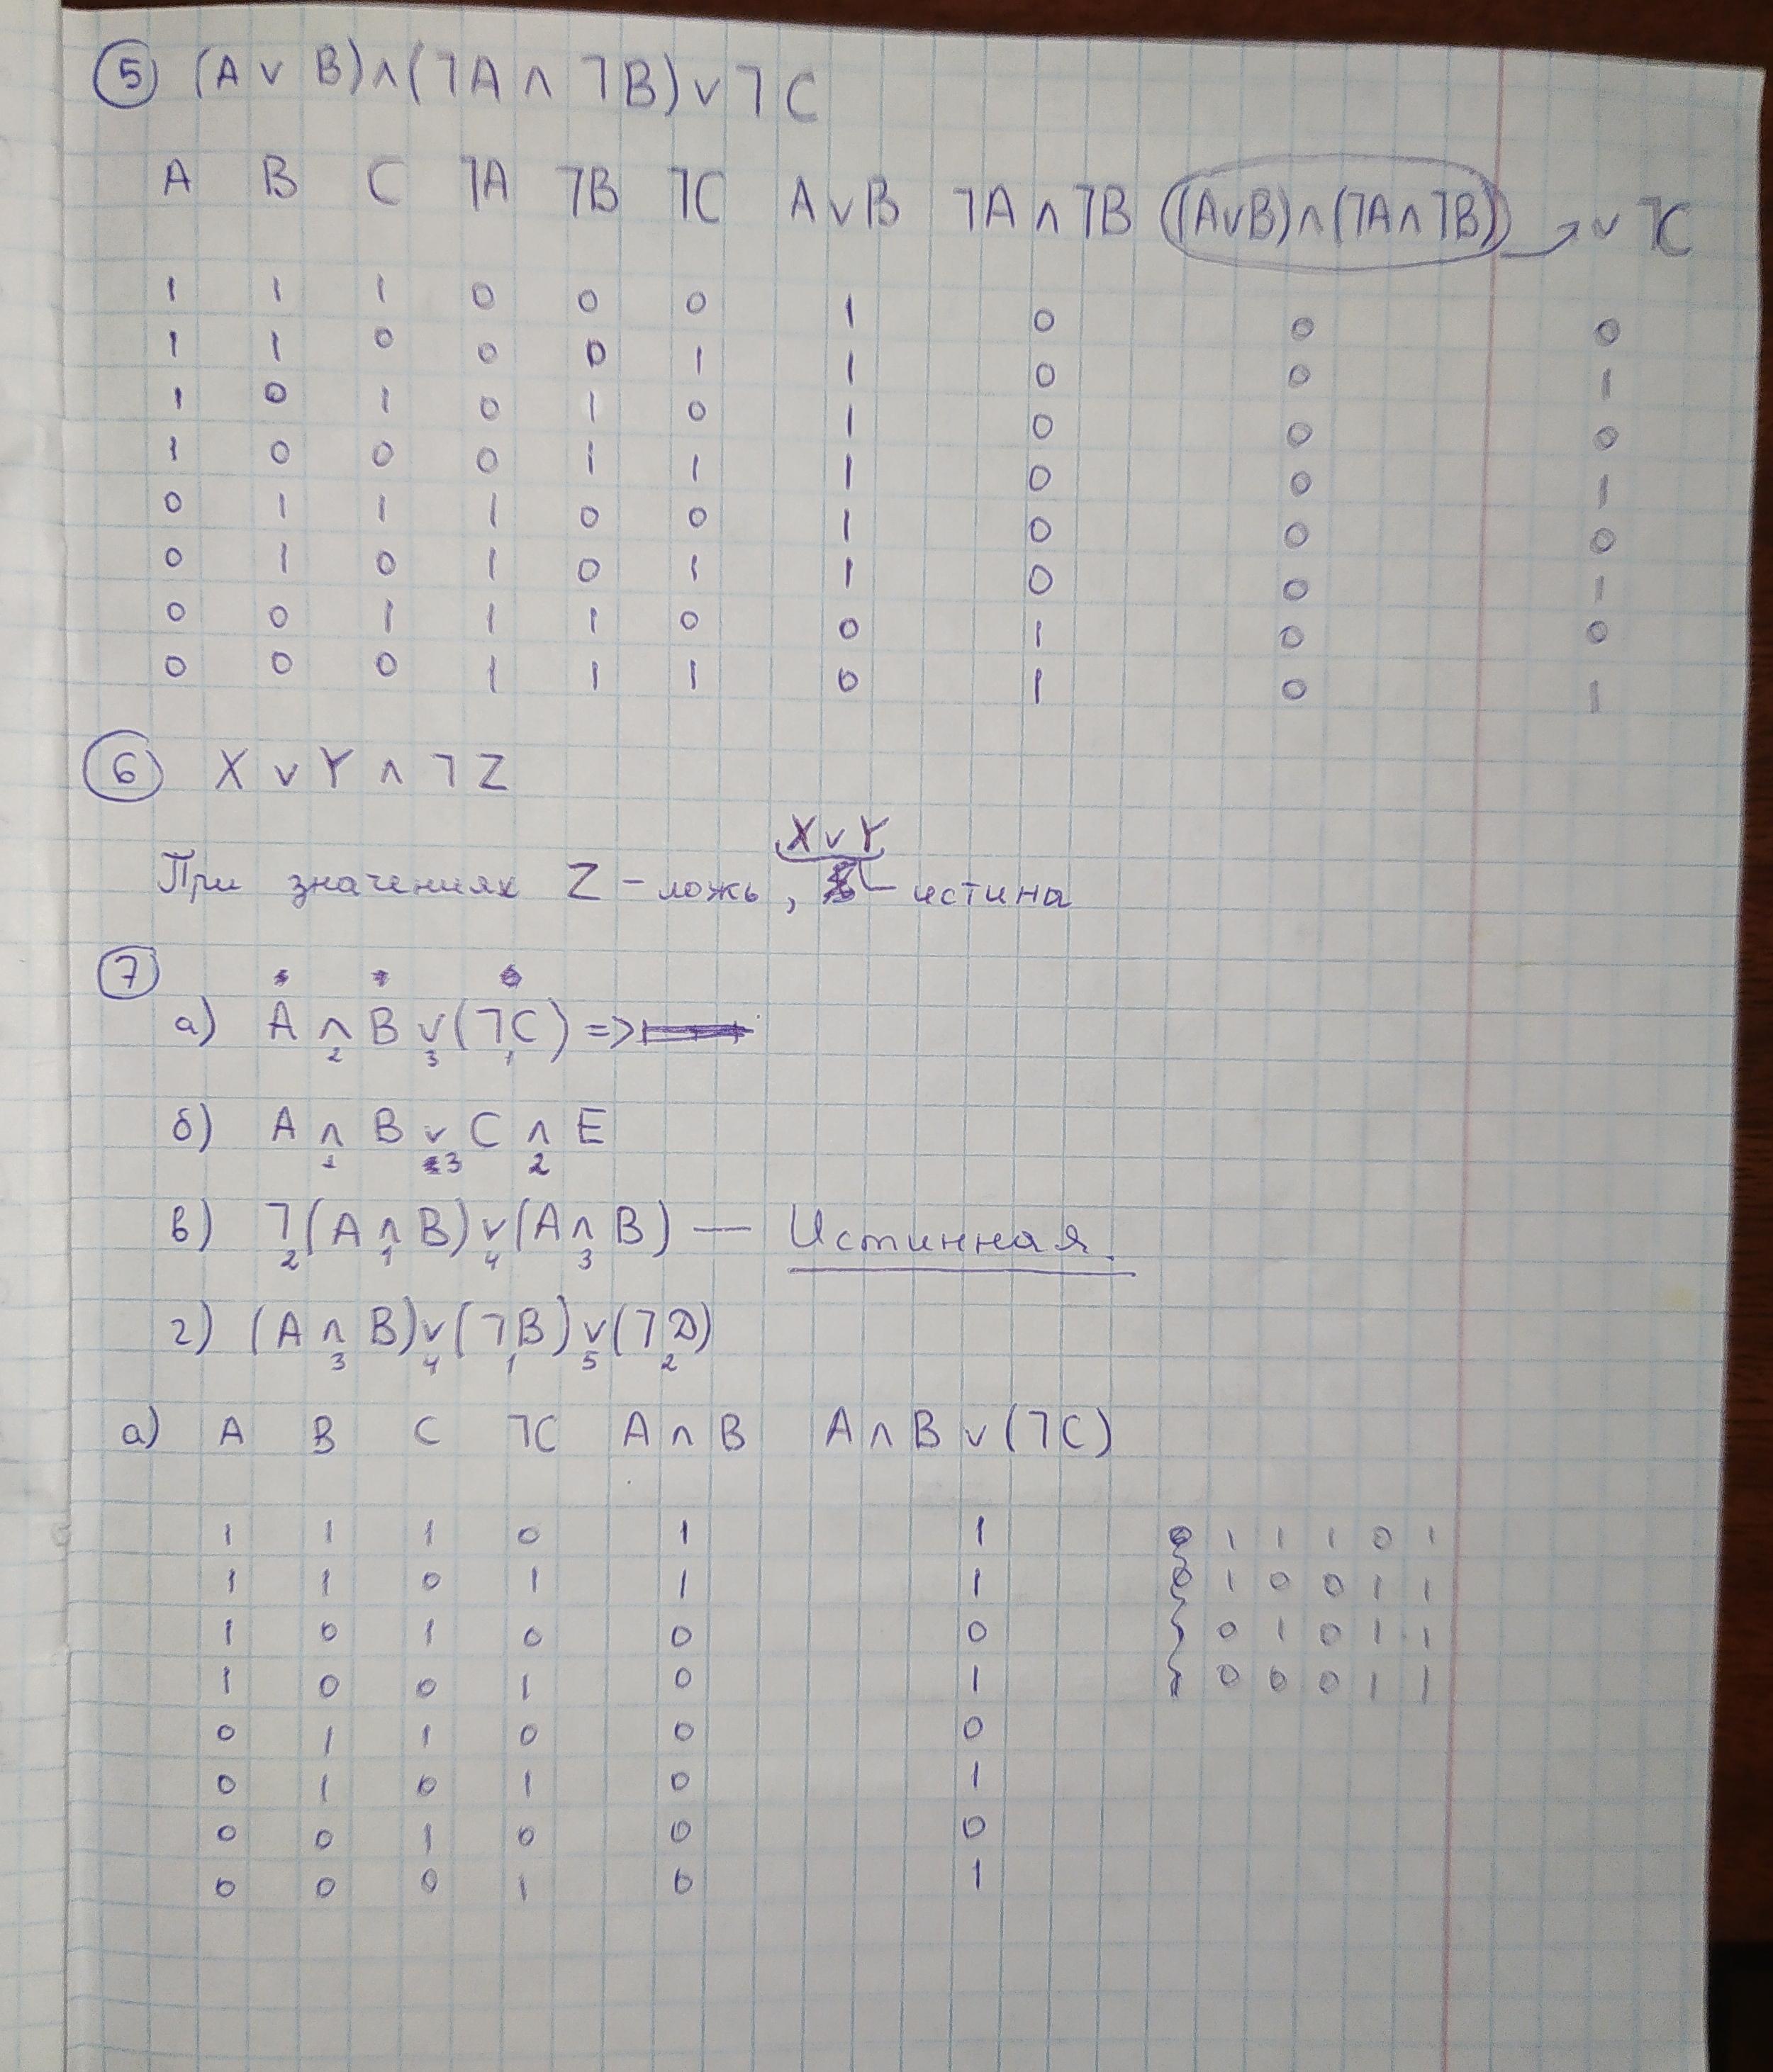 5 (A ∨ B) ∧ (¬A ∧ ¬B) ∨ ¬C
A B C ¬A ¬B ¬C A ∨ B ¬A ∧ ¬B ((A∨B)∧(¬A∧¬B)) ∨ ¬C
1 1 1 0 0 0 1 0 0 0
1 1 0 0 0 1 1 0 0 1
1 0 1 0 1 0 1 0 0 0
1 0 0 0 1 1 1 0 0 1
0 1 1 1 0 0 1 0 0 0
0 1 0 1 0 1 1 0 0 1
0 0 1 1 1 0 0 1 0 0
0 0 0 1 1 1 0 1 0 1
6 X ∨ Y ∧ ¬Z
X ∨ Y
При значениях Z – ложь, – истина
7
а) A ∧ B ∨ (¬C) =>
2 3 1
б) A ∧ B ∨ C ∧ E
1 3 2
в) ¬(A ∧ B) ∨ (A ∧ B) — Истинная.
2 1 4 3
г) (A ∧ B) ∨ (¬B) ∨ (¬D)
3 4 1 5 2
а) A B C ¬C A ∧ B A ∧ B ∨ (¬C)
1 1 1 0 1 1 1 1 1 0 1
1 1 0 1 1 1 1 0 0 1 1
1 0 1 0 0 0 0 1 0 1 1
1 0 0 1 0 1 0 0 0 1 1
0 1 1 0 0 0
0 1 0 1 0 1
0 0 1 0 0 0
0 0 0 1 0 1